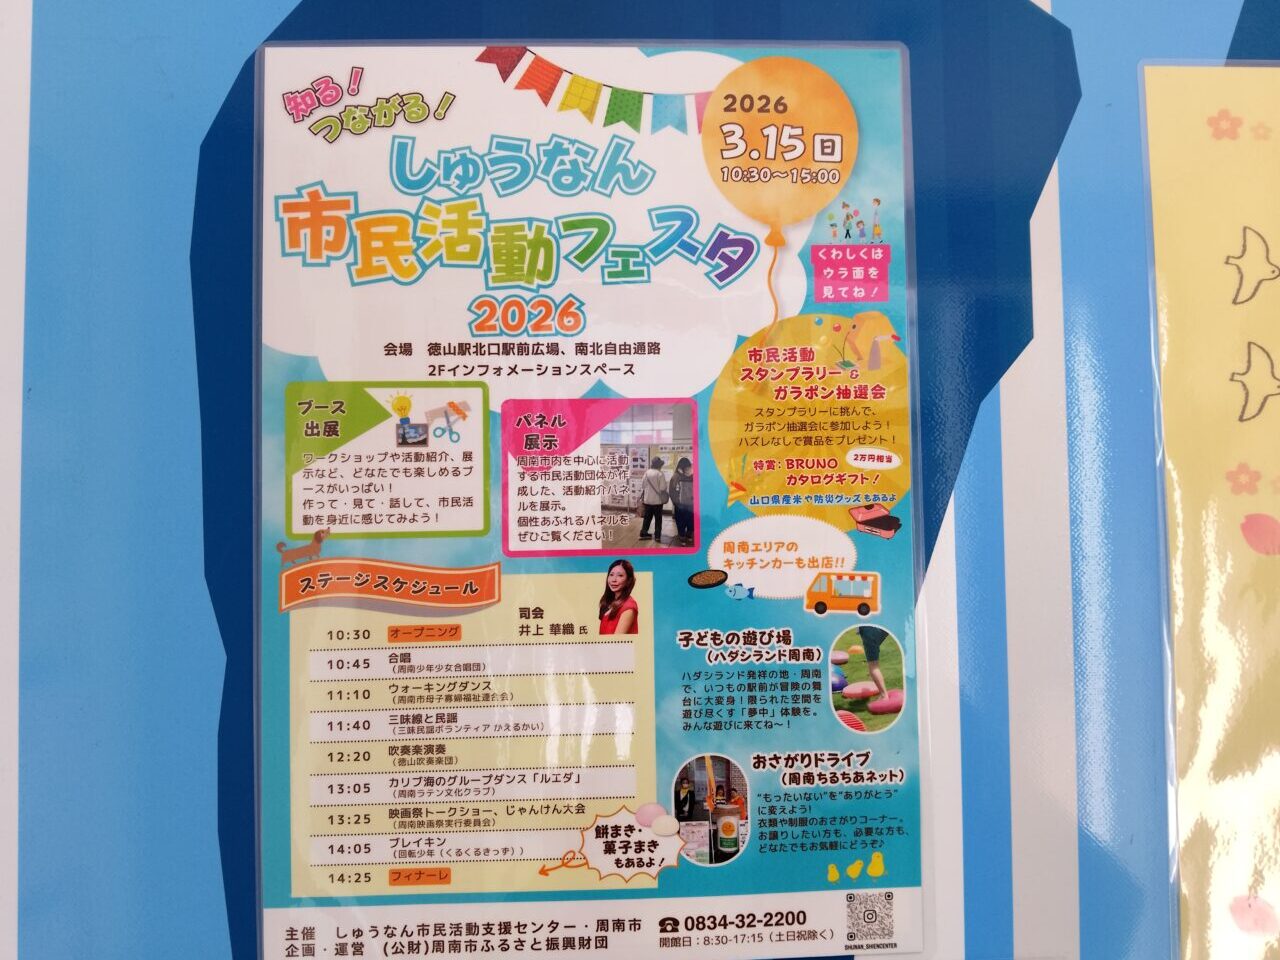 知る！
つながる！
しゅうなん
市民活動フェスタ
2026
2026
3.15日
10:30～15:00
くわしくは
ウラ面を
見てね！
会場　徳山駅北口駅前広場、南北自由通路
2Fインフォメーションスペース
ブース
出展
ワークショップや活動紹介、展
示など、どなたでも楽しめるブ
ースがいっぱい！
作って・見て・話して、市民活
動を身近に感じてみよう！
パネル
展示
周南市内を中心に活動
する市民活動団体が作
成した、活動紹介パネ
ルを展示。
個性あふれるパネルを
ぜひご覧ください！
市民活動
スタンプラリー＆
ガラポン抽選会
スタンプラリーに挑んで、
ガラポン抽選会に参加しよう！
ハズレなしで賞品をプレゼント！
特賞：BRUNO
カタログギフト！
2万円相当
山口県産米や防災グッズもあるよ
周南エリアの
キッチンカーも出店!!
ステージスケジュール
司会
井上 華織 氏
10:30 オープニング
10:45 合唱
（周南少年少女合唱団）
11:10 ウォーキングダンス
（周南市母子寡婦福祉連合会）
11:40 三味線と民謡
（三味民謡ボランティア かえるかい）
12:20 吹奏楽演奏
（徳山吹奏楽団）
13:05 カリブ海のグループダンス「ルエダ」
（周南ラテン文化クラブ）
13:25 映画祭トークショー、じゃんけん大会
（周南映画祭実行委員会）
14:05 ブレイキン
（回転少年（くるくるきっず））
14:25 フィナーレ
餅まき・
菓子まき
もあるよ！
子どもの遊び場
（ハダシランド周南）
ハダシランド発祥の地・周南
で、いつもの駅前が冒険の舞
台に大変身！限られた空間を
遊び尽くす「夢中」体験を。
みんな遊びに来てね～！
おさがりドライブ
（周南ちるちあネット）
“もったいない”を“ありがとう”
に変えよう！
衣類や制服のおさがりコーナー。
お譲りしたい方も、必要な方も、
どなたでもお気軽にどうぞ♪
主催　しゅうなん市民活動支援センター・周南市
企画・運営　(公財)周南市ふるさと振興財団
☎0834-32-2200
開館日：8:30-17:15（土日祝除く）
SHUNAN_SHIENCENTER